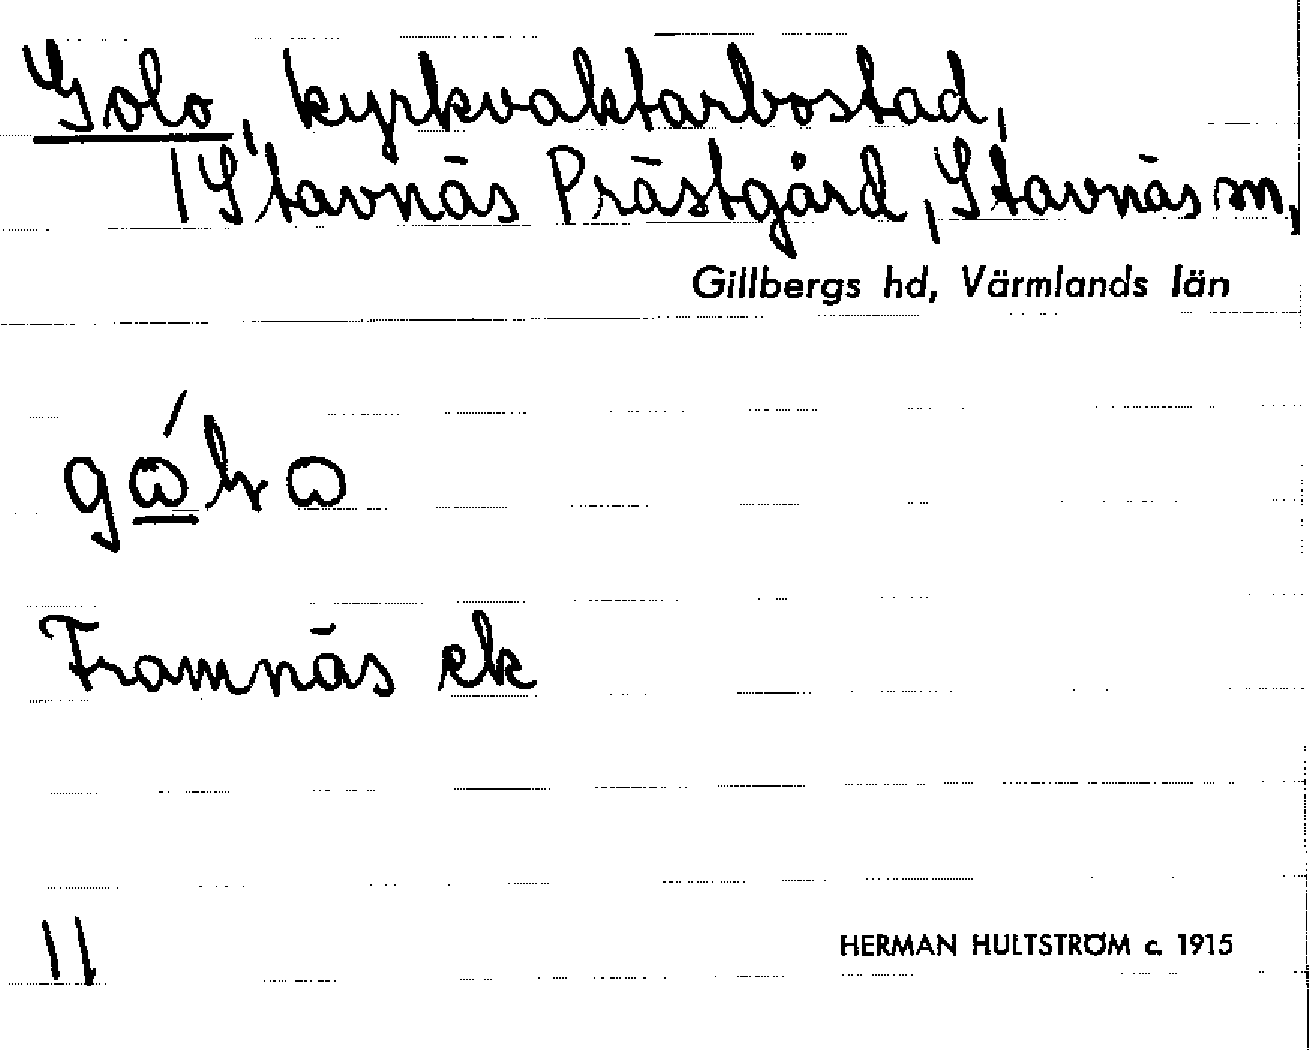 Golo, kyrkvaktarbostad,
1 Stavnäs Prästgård, Stavnäs sn,
Gillbergs hd, Värmlands län
Framnäs ek
11
HERMAN HULTSTRÖM c. 1915